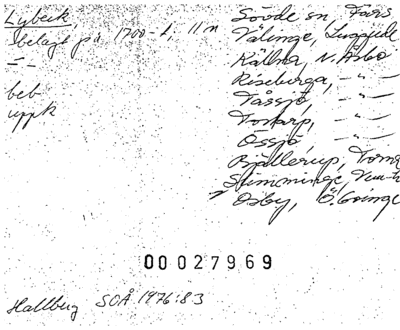 Lybeck,
belagt på 1700-t, 11 n
- " -
beb
uppk
Sövde sn, Färs
Välinge, Luggude
Källna, N. Åsbo
Riseberga, - " -
Tåssjö, - " -
Tostarp, - " -
Össjö, - " -
Bjällerup, Torna
Stimminge, Vem
Osby, Ö. Göinge
00027969
Hallberg SOÅ 1976:83